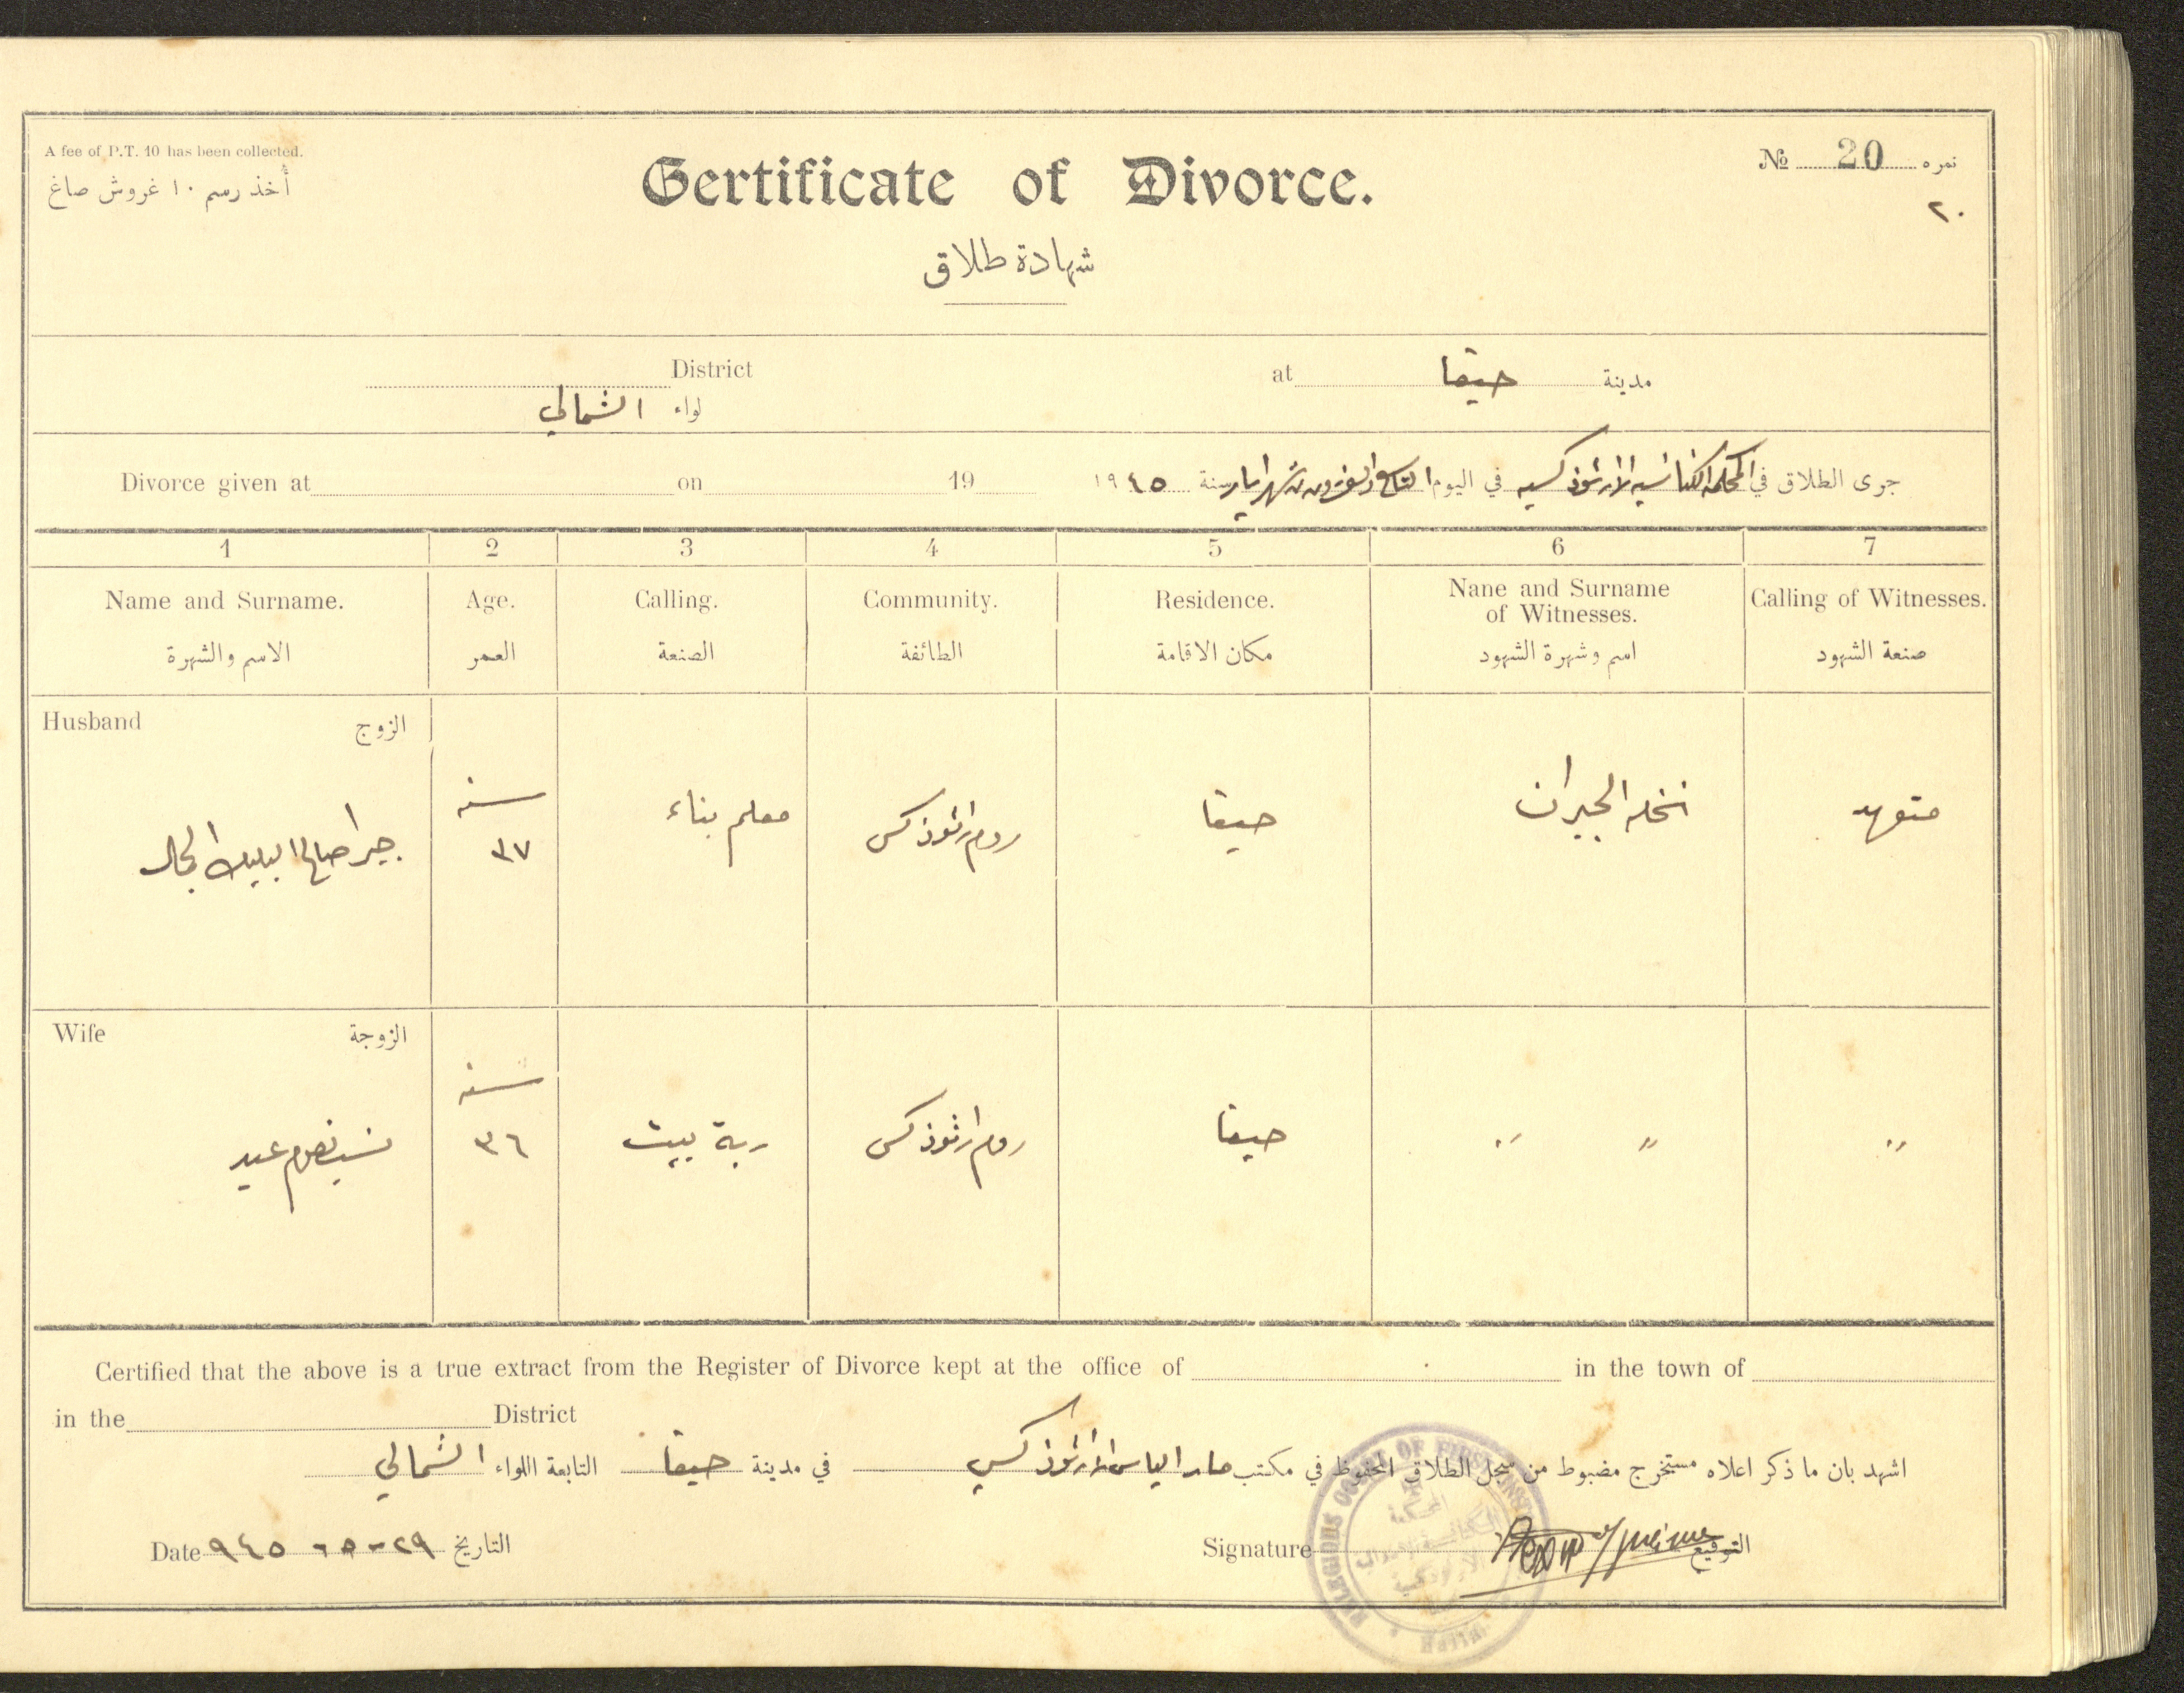 A fee of P.T. 10 has been collected.
أخذ رسم ١٠ غروش صاغ
Certificate of Divorce.
شهادة طلاق
№ 20 نمره
٢٠
District
لواء الشمالي
at حيفا مدينة
Divorce given at on 19
جرى الطلاق في المحكمة الكنائسيه الارثوذكسيه في اليوم التاسع والعشرون من شهر ايار سنة ١٩٤٥
1 2 3 4 5 6 7
Name and Surname. Age. Calling. Community. Residence. Nane and Surname of Witnesses. Calling of Witnesses.
الاسم والشهرة العمر الصنعة الطائفة مكان الاقامة اسم وشهرة الشهود صنعة الشهود
Husband الزوج
سنه
٣٧
معلم بناء
روم ارثوذكس
حيفا
نخله الجبران
متعهد
Wife الزوجة
عيد
سنه
٣٦
ربة بيت
روم ارثوذكس
حيفا
" "
"
Certified that the above is a true extract from the Register of Divorce kept at the office of in the town of
in the District
اشهد بان ما ذكر اعلاه مستخرج مضبوط من سجل الطلاق المحفوظ في مكتب مار الياس الارثوذكسي في مدينة حيفا التابعة اللواء الشمالي
Date ٢٩-٥-٩٤٥ التاريخ
Signature التوقيع
RELIGIOUS COURT OF FIRST
المحكمة